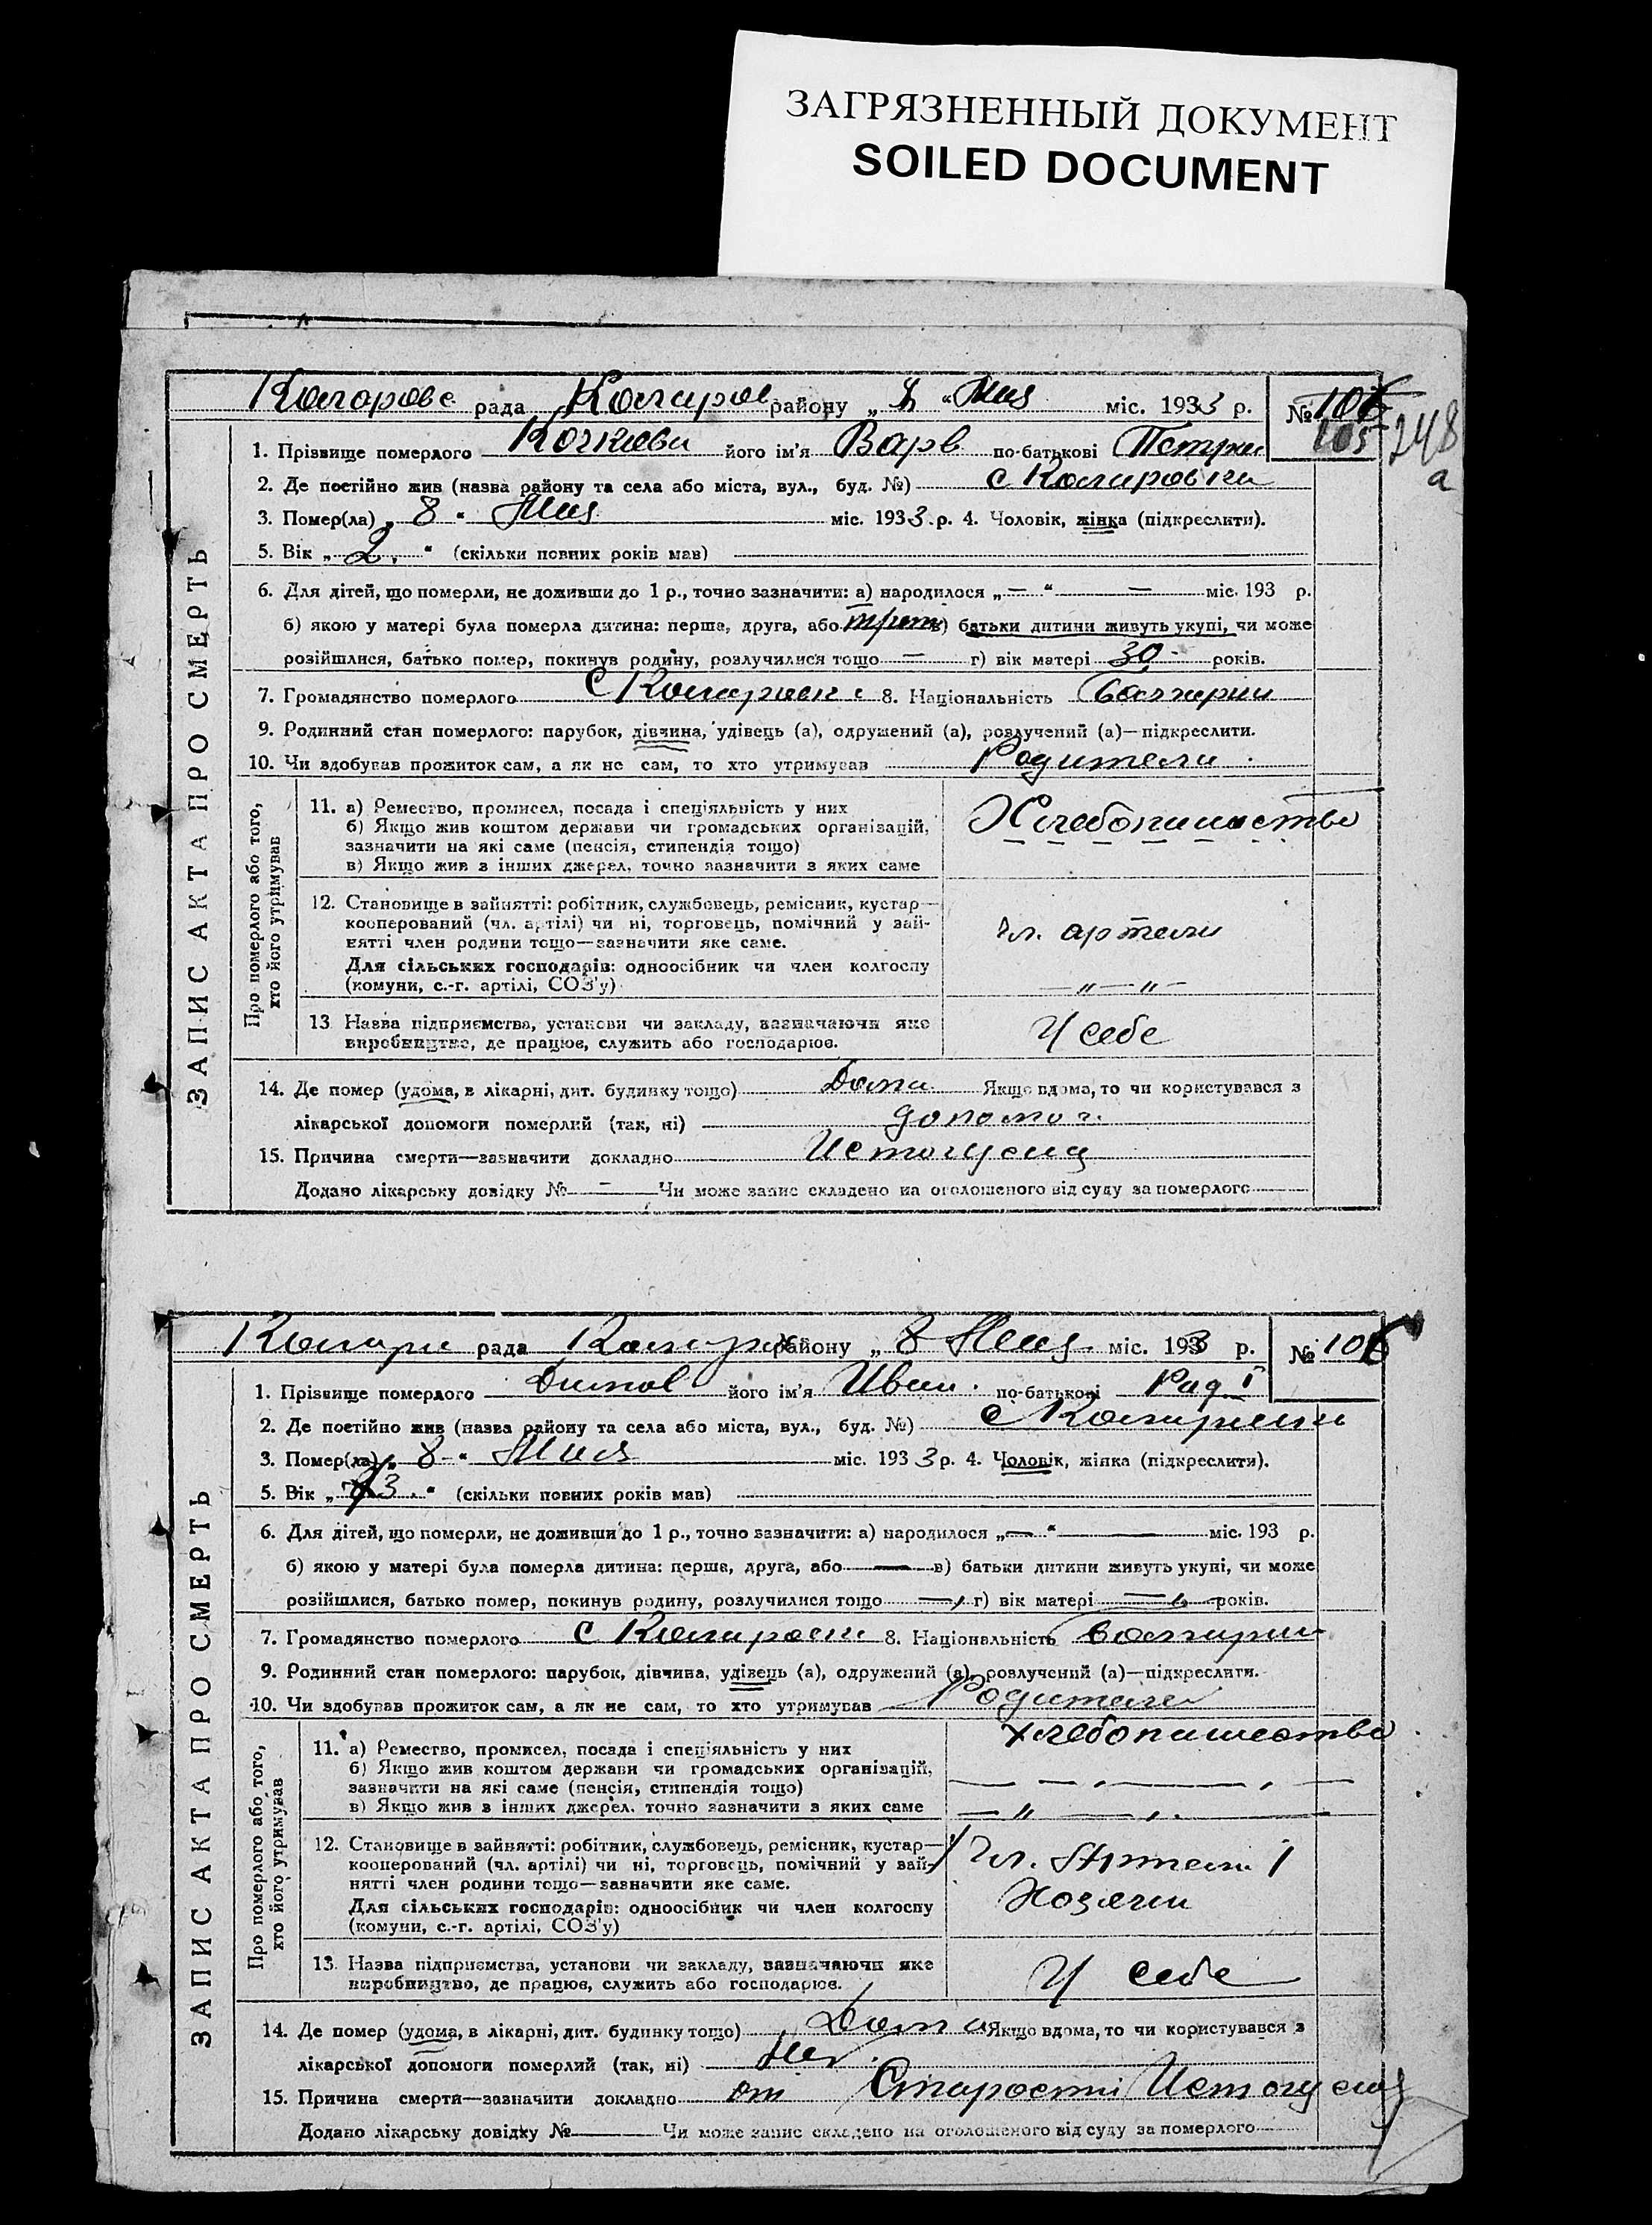 ЗАГРЯЗНЕННЫЙ ДОКУМЕНТ
SOILED DOCUMENT
рада району „ “ Мая міс. 1933 р. № 106
105 248
а
1. Прізвище померлого його ім'я Варв по-батькові Петри
2. Де постійно жив (назва району та села або міста, вул., буд. №) с
3. Помер(ла) „ 8 “ Мая міс. 1933 р. 4. Чоловік, жінка (підкреслити).
5. Вік „ 2. “ (скільки повних років мав)
6. Для дітей, що померли, не доживши до 1 р., точно зазначити: а) народилося „ — “ — міс. 193 р.
б) якою у матері була померла дитина: перша, друга, або в) батьки дитини живуть укупі, чи може
розійшлися, батько помер, покинув родину, розлучилися тощо — г) вік матері 30 років.
7. Громадянство померлого с 8. Національність
9. Родинний стан померлого: парубок, дівчина, удівець (а), одружений (а), розлучений (а)—підкреслити.
10. Чи здобував прожиток сам, а як не сам, то хто утримував Родители
ЗАПИС АКТА ПРО СМЕРТЬ
Про померлого або того, хто його утримував
11. а) Ремество, промисел, посада і спеціяльність у них
б) Якщо жив коштом держави чи громадських організацій,
зазначити на які саме (пенсія, стипендія тощо)
в) Якщо жив з інших джерел, точно зазначити з яких саме
Хлебопашество
12. Становище в зайнятті: робітник, службовець, ремісник, кустар—
кооперований (чл. артілі) чи ні, торговець, помічний у зай-
нятті член родини тощо—зазначити яке саме.
Для сільських господарів: одноосібник чи член колгоспу
(комуни, с.-г. артілі, СОЗ'у)
Чл. артели
— „ — „ —
13. Назва підприємства, установи чи закладу, зазначаючи яке
виробництво, де працює, служить або господарює.
У себе
14. Де помер (удома, в лікарні, дит. будинку тощо) Дома Якщо вдома, то чи користувався з
лікарської допомоги померлий (так, ні) допомог.
15. Причина смерти—зазначити докладно
Додано лікарську довідку № — Чи може запис складено на оголошеного від суду за померлого
рада району „ 8 Мая міс. 1933 р. № 106
1. Прізвище померлого Димов його ім'я Иван. по-батькові
2. Де постійно жив (назва району та села або міста, вул., буд. №) с
3. Помер(ла) „ 8 “ Мая міс. 1933 р. 4. Чоловік, жінка (підкреслити).
5. Вік „ 73. “ (скільки повних років мав)
6. Для дітей, що померли, не доживши до 1 р., точно зазначити: а) народилося „ — “ — міс. 193 р.
б) якою у матері була померла дитина: перша, друга, або — в) батьки дитини живуть укупі, чи може
розійшлися, батько помер, покинув родину, розлучилися тощо — г) вік матері — років.
7. Громадянство померлого с 8. Національність
9. Родинний стан померлого: парубок, дівчина, удівець (а), одружений (а), розлучений (а)—підкреслити.
10. Чи здобував прожиток сам, а як не сам, то хто утримував Родители
ЗАПИС АКТА ПРО СМЕРТЬ
Про померлого або того, хто його утримував
11. а) Ремество, промисел, посада і спеціяльність у них
б) Якщо жив коштом держави чи громадських організацій,
зазначити на які саме (пенсія, стипендія тощо)
в) Якщо жив з інших джерел, точно зазначити з яких саме
хлебопашество
12. Становище в зайнятті: робітник, службовець, ремісник, кустар—
кооперований (чл. артілі) чи ні, торговець, помічний у зай-
нятті член родини тощо—зазначити яке саме.
Для сільських господарів: одноосібник чи член колгоспу
(комуни, с.-г. артілі, СОЗ'у)
Чл. Артели
Хозяин
13. Назва підприємства, установи чи закладу, зазначаючи яке
виробництво, де працює, служить або господарює.
У себе
14. Де помер (удома, в лікарні, дит. будинку тощо) Дома Якщо вдома, то чи користувався з
лікарської допомоги померлий (так, ні)
15. Причина смерти—зазначити докладно от Старости
Додано лікарську довідку № Чи може запис складено на оголошеного від суду за померлого